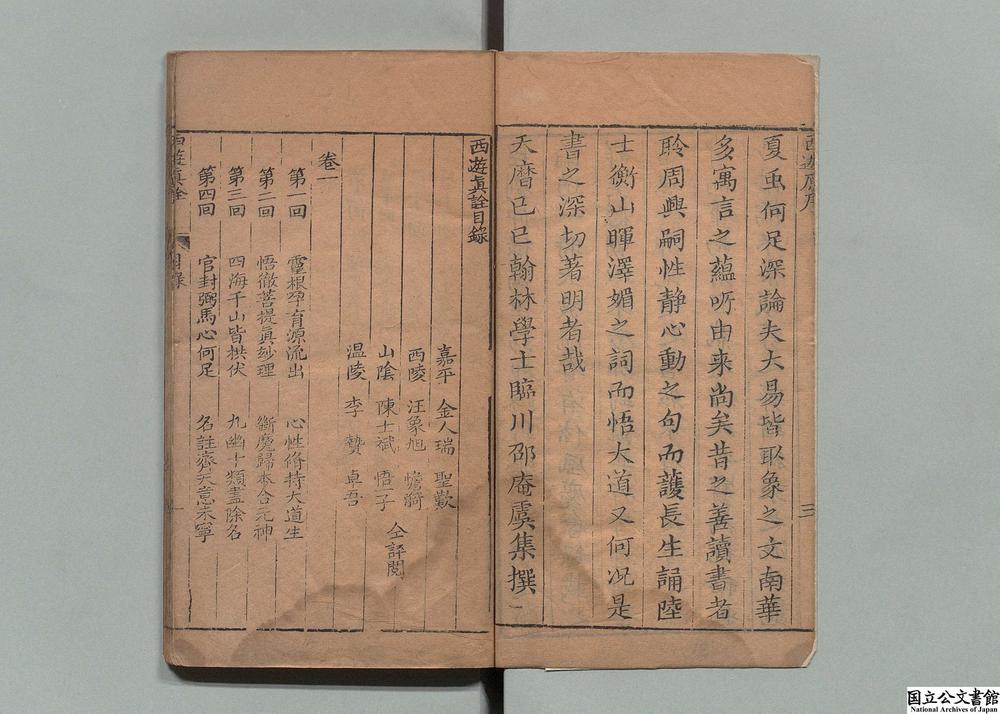 夏虫何足深論夫大易皆取象之文南華
多寓言之蘊所由来尚矣昔之善讀書者
聆周興嗣性静心動之句而護長生誦陸
士衡山暉澤媚之詞而悟大道又何况是
書之深切著明者哉
天曆己巳翰林學士臨川邵庵虞集撰
三
西遊真詮目錄
嘉平 金人瑞 聖歎
西陵 汪象旭 憺漪
山陰 陳士斌 悟子
溫陵 李贄 卓吾
仝評閱
卷一
第一回 靈根孕育源流出 心性脩持大道生
第二回 悟徹菩提眞妙理 斷魔歸本合元神
第三回 四海千山皆拱伏 九幽十類盡除名
第四回 官封弼馬心何足 名註齊天意未寧
西遊真詮 目錄 一
国立公文書館
National Archives of Japan